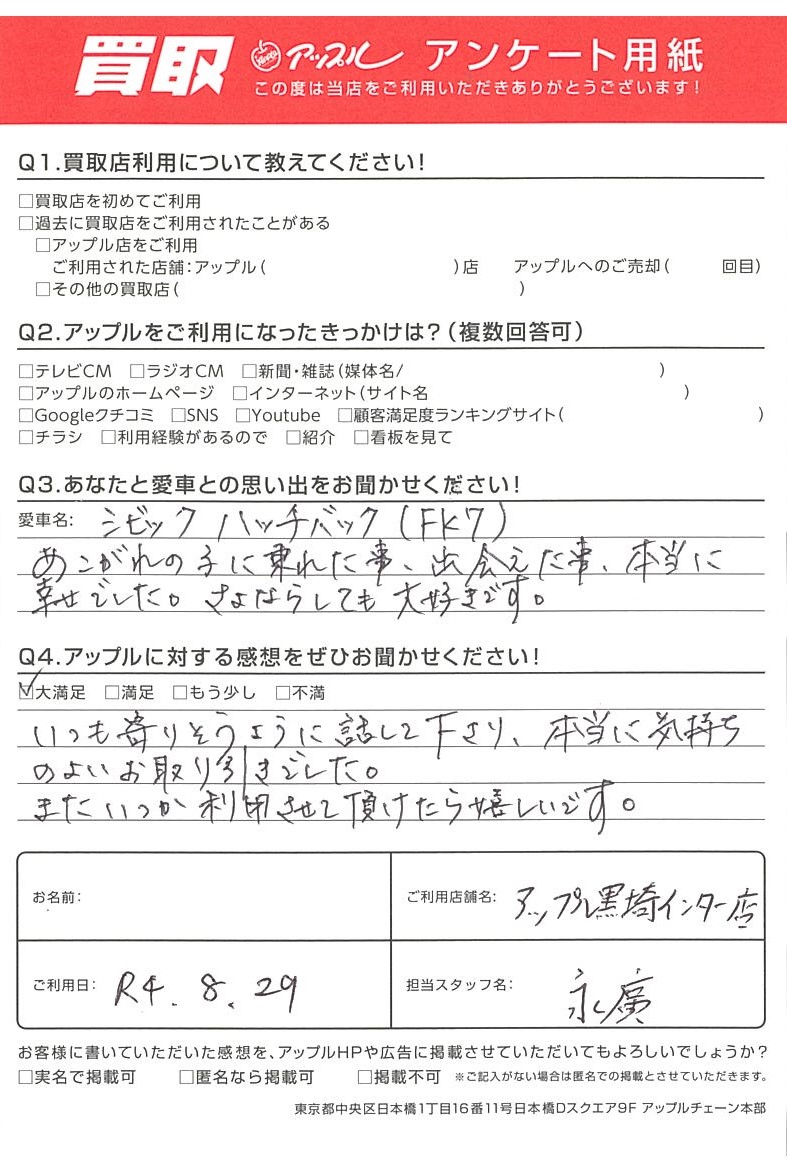 買取 Apple アップル アンケート用紙
この度は当店をご利用いただきありがとうございます!
Q1.買取店利用について教えてください!
□買取店を初めてご利用
□過去に買取店をご利用されたことがある
□アップル店をご利用
ご利用された店舗:アップル( )店 アップルへのご売却( 回目)
□その他の買取店( )
Q2.アップルをご利用になったきっかけは?(複数回答可)
□テレビCM □ラジオCM □新聞・雑誌(媒体名/ )
□アップルのホームページ □インターネット(サイト名 )
□Googleクチコミ □SNS □Youtube □顧客満足度ランキングサイト( )
□チラシ □利用経験があるので □紹介 □看板を見て
Q3.あなたと愛車との思い出をお聞かせください!
愛車名: シビック ハッチバック(FK7)
あこがれの子に乗れた事、出会えた事、本当に
幸せでした。さよならしても大好きです。
Q4.アップルに対する感想をぜひお聞かせください!
☑大満足 □満足 □もう少し □不満
いつも寄りそうように話して下さり、本当に気持ち
のよいお取り引きでした。
またいつか利用させて頂けたら嬉しいです。
お名前: ご利用店舗名: アップル黒埼インター店
ご利用日: R4.8.29 担当スタッフ名: 永廣
お客様に書いていただいた感想を、アップルHPや広告に掲載させていただいてもよろしいでしょうか?
□実名で掲載可 □匿名なら掲載可 □掲載不可 ※ご記入がない場合は匿名での掲載とさせていただきます。
東京都中央区日本橋1丁目16番11号日本橋Dスクエア9F アップルチェーン本部